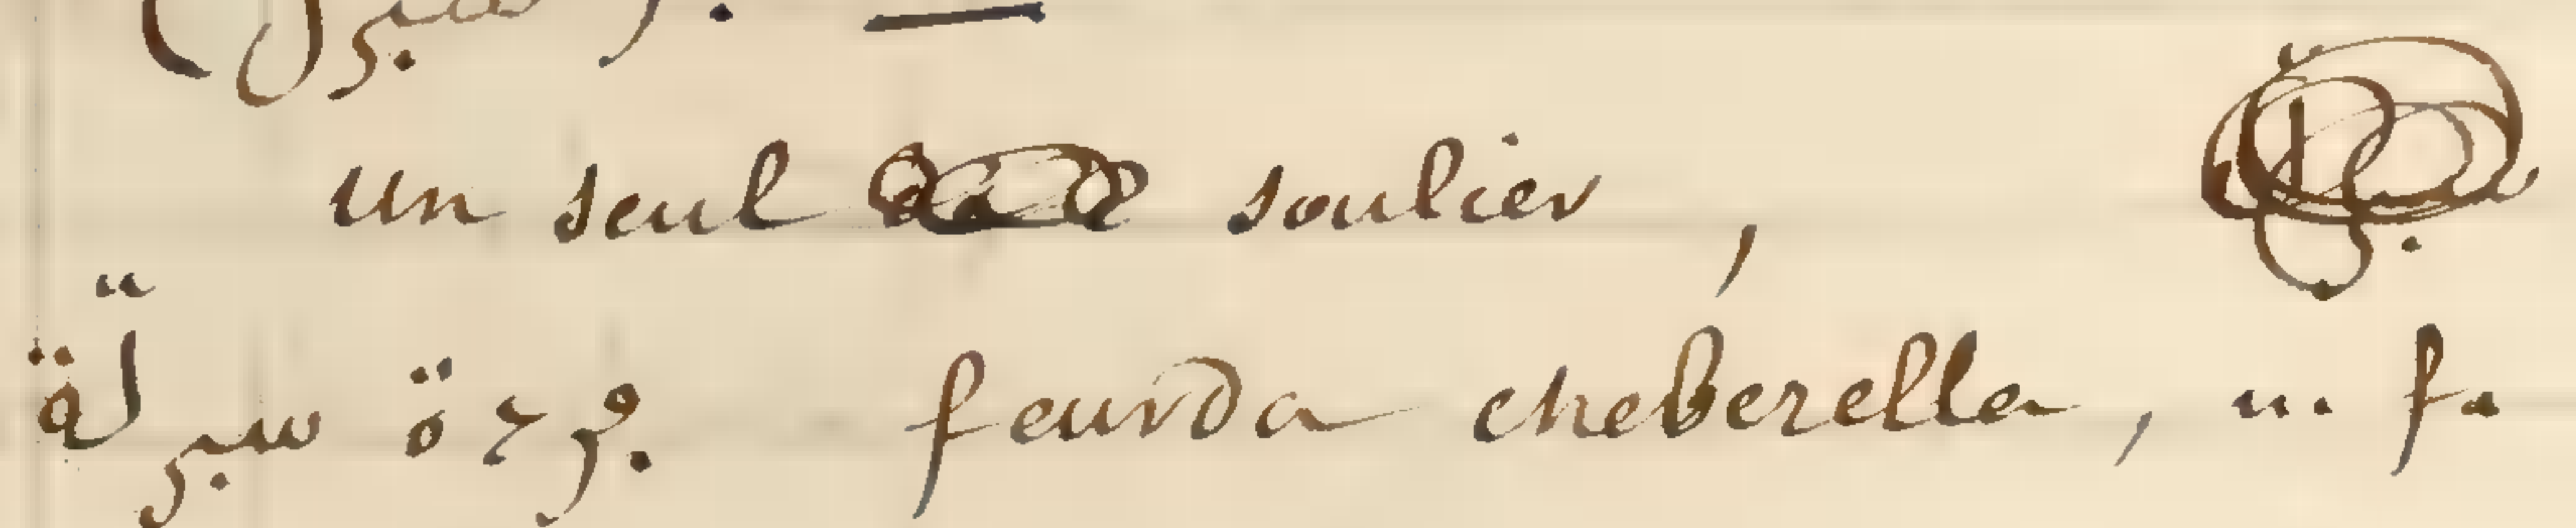 un seul soulier ,
ڢردة سبرلّة - feurda cheberella, n. f.